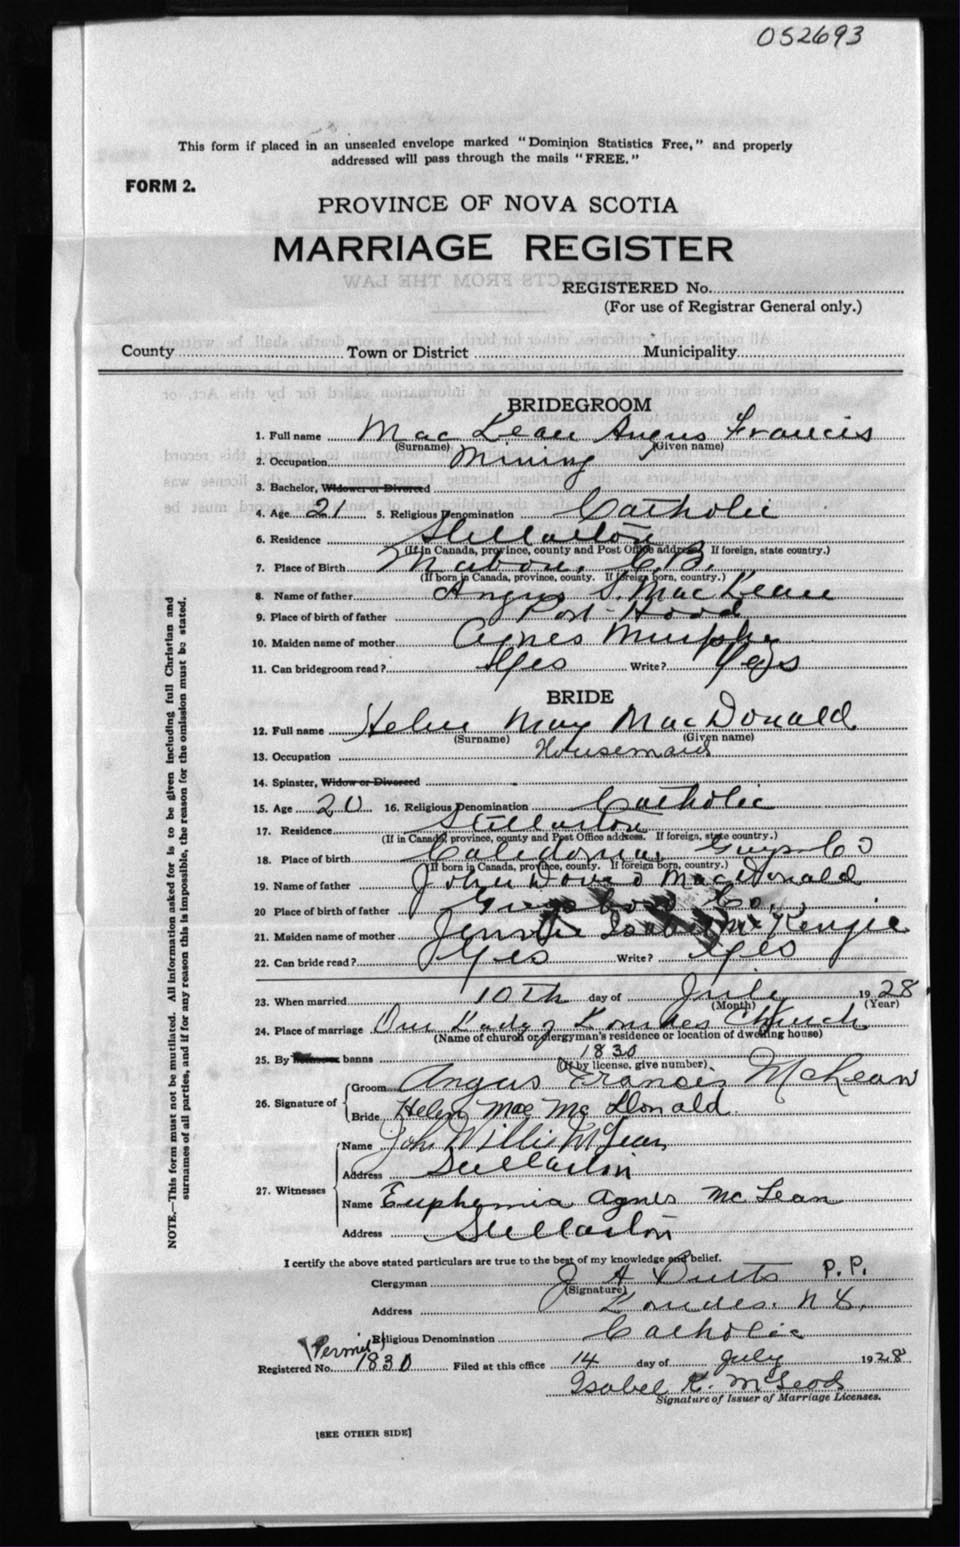 052693
This form if placed in an unsealed envelope marked "Dominion Statistics Free," and properly
addressed will pass through the mails "FREE."
FORM 2.
PROVINCE OF NOVA SCOTIA
MARRIAGE REGISTER
REGISTERED No.
(For use of Registrar General only.)
County Town or District Municipality
BRIDEGROOM
1. Full name Mac Lean Angus Francis
(Surname) (Given name)
2. Occupation Mining
3. Bachelor, Widower or Divorced
4. Age 21 5. Religious Denomination Catholic
6. Residence Stellarton
(If in Canada, province, county and Post Office address. If foreign, state country.)
7. Place of Birth Mabou, C.B.
(If born in Canada, province, county. If foreign born, country.)
8. Name of father Angus S. MacLean
9. Place of birth of father Port Hood
10. Maiden name of mother Agnes Murphy
11. Can bridegroom read? Yes Write? Yes
BRIDE
12. Full name Helen May MacDonald
(Surname) (Given name)
13. Occupation Housemaid
14. Spinster, Widow or Divorced
15. Age 20 16. Religious Denomination Catholic
17. Residence Stellarton
(If in Canada, province, county and Post Office address. If foreign, state country.)
18. Place of birth Caledonia, Guys. Co
(If born in Canada, province, county. If foreign born, country.)
19. Name of father John David MacDonald
20 Place of birth of father Guysboro Co.
21. Maiden name of mother Isabel McKenzie
22. Can bride read? Yes Write? Yes
23. When married 10th day of July 1928
(Month) (Year)
24. Place of marriage Our Lady of Lourdes Church
(Name of church or clergyman's residence or location of dwelling house)
25. By banns 1830
(If by license, give number)
26. Signature of Groom Angus Francis McLean
Bride Helen Mae McDonald
27. Witnesses Name John Willie McLean
Address Stellarton
Name Euphemia Agnes McLean
Address Stellarton
I certify the above stated particulars are true to the best of my knowledge and belief.
Clergyman J A Butts P.P.
(Signature)
Address Lourdes. N.S.
Religious Denomination Catholic
(Permit)
Registered No. 1830 Filed at this office 14 day of July 1928
Isabel K. McLeod
Signature of Issuer of Marriage Licenses.
[SEE OTHER SIDE]
NOTE.—This form must not be mutilated. All information asked for is to be given including full Christian and
surnames of all parties, and if for any reason this is impossible, the reason for the omission must be stated.